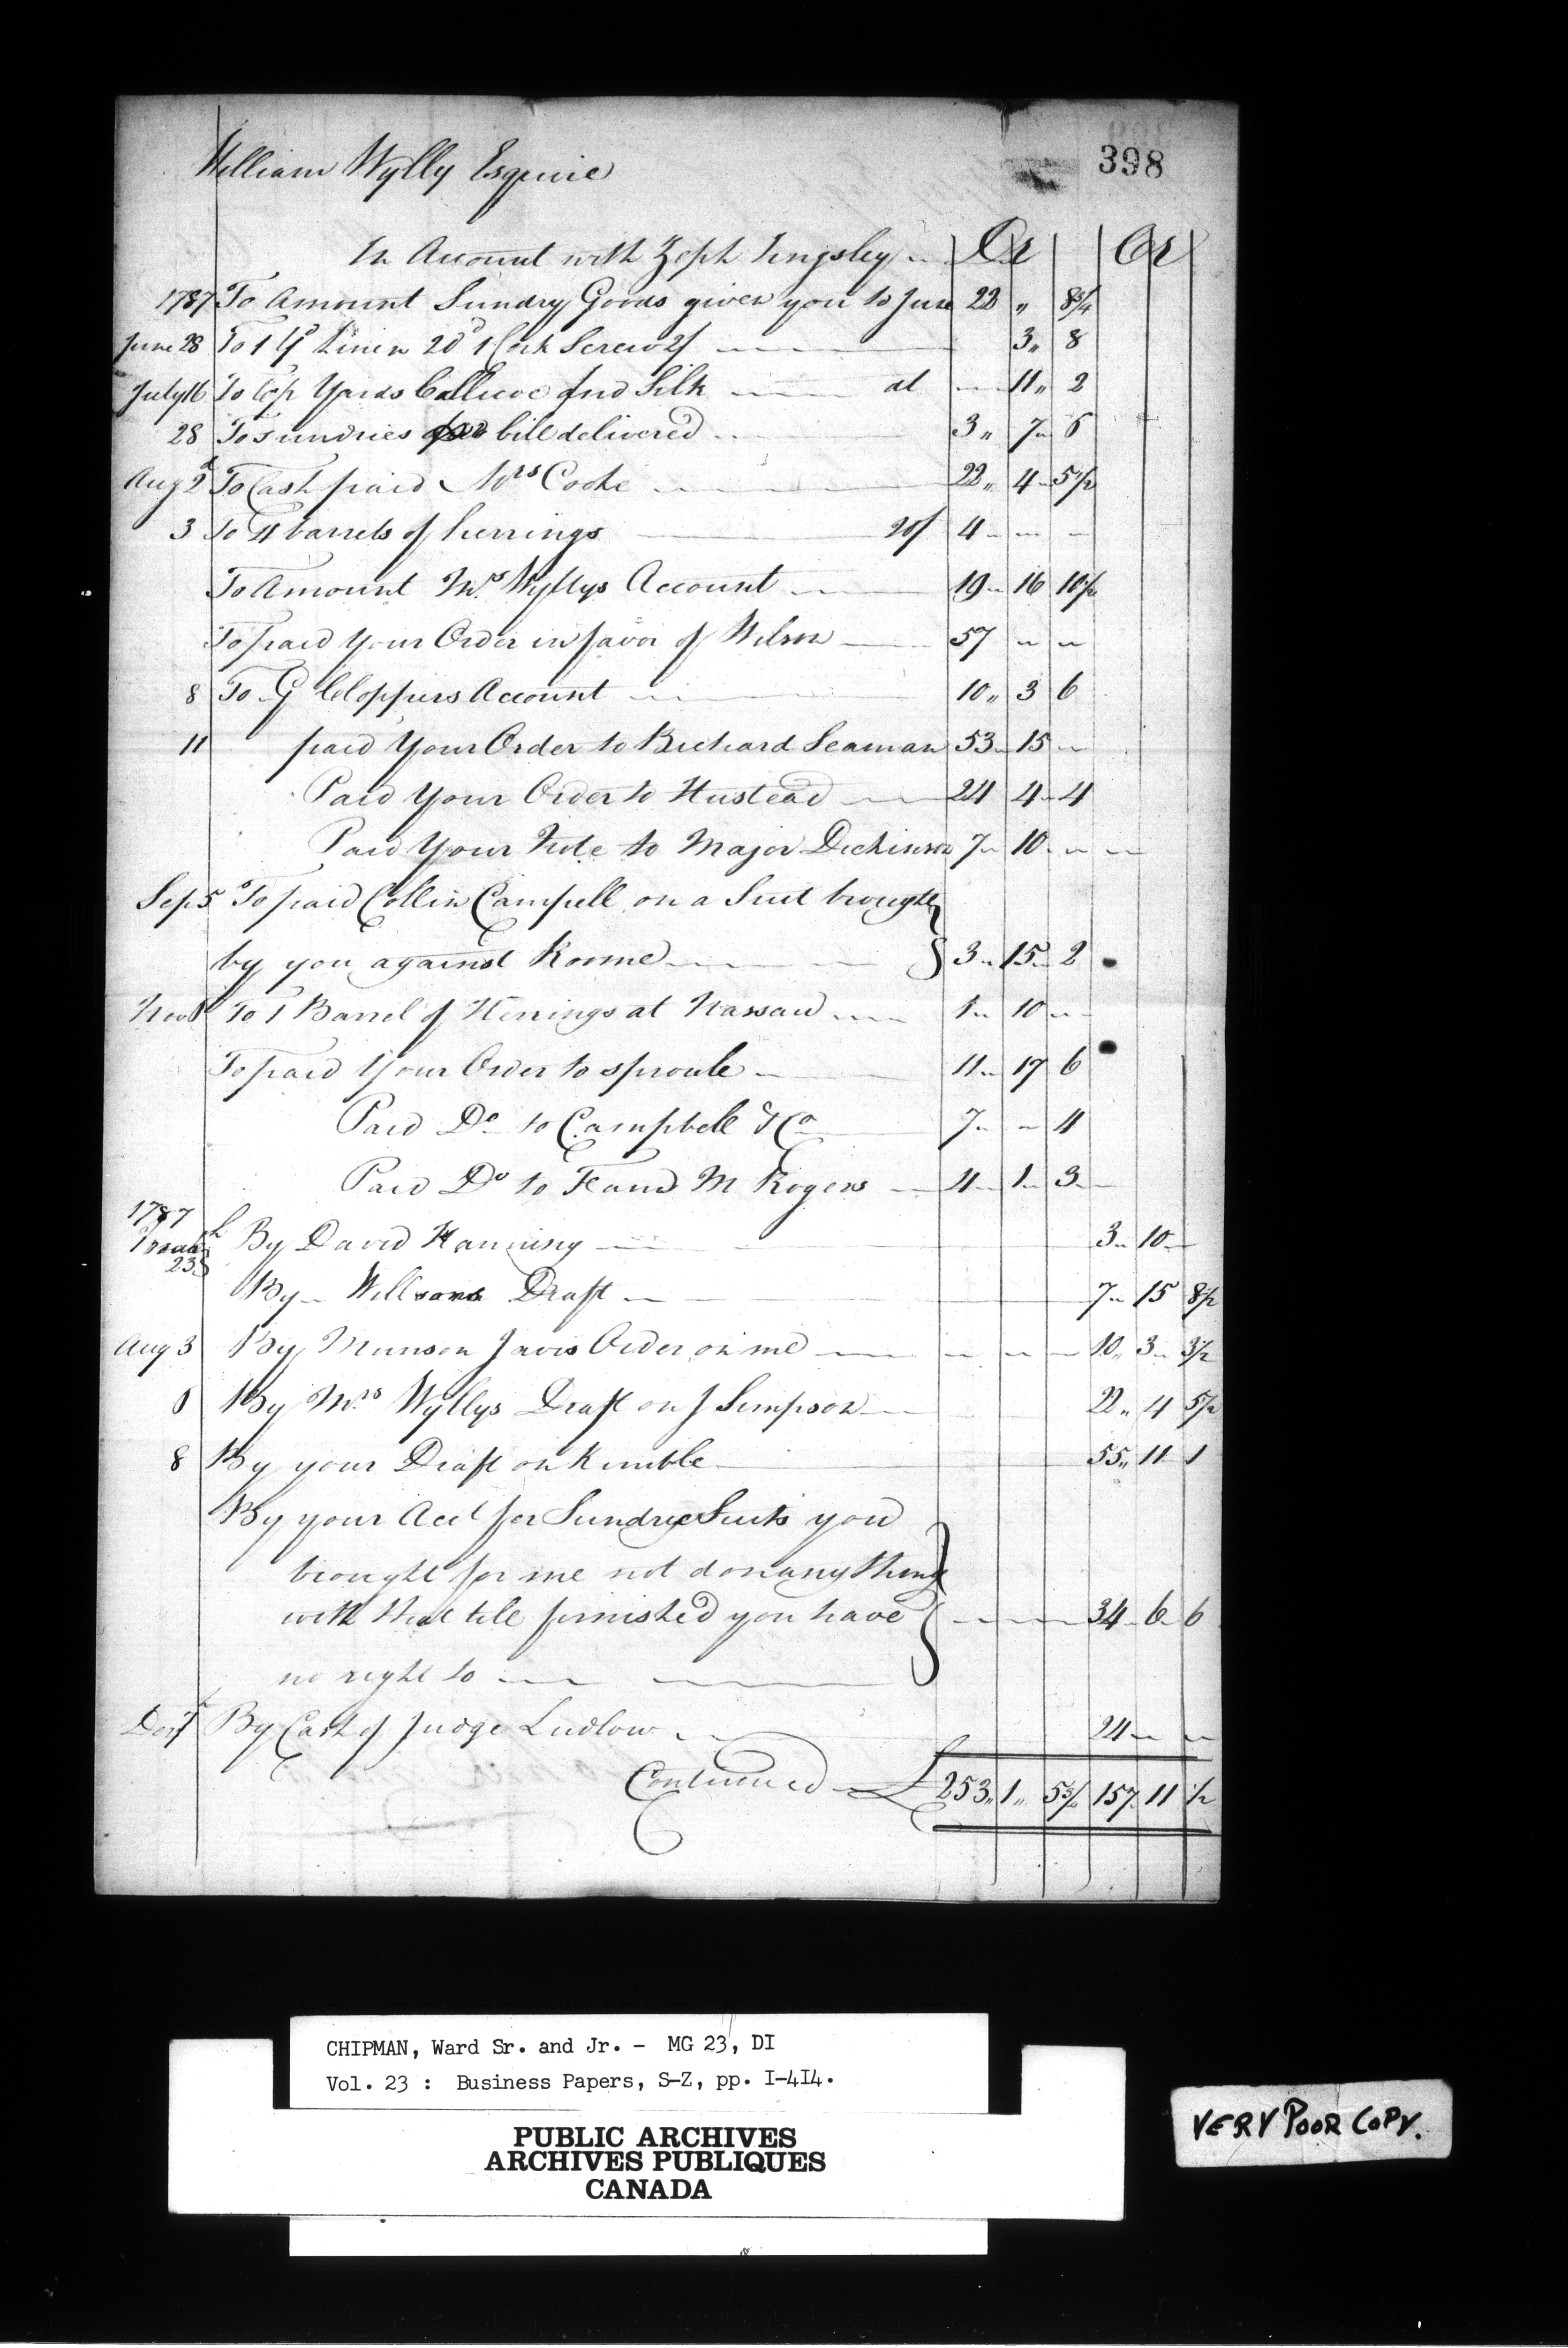 398
William Wylly Esquire
In Account with Zeph Kingsley Dr Cr
1787 To Amount Sundry Goods given you to June 22 „ 8¾
June 28 To 1 Yd Linen 20d 1 Cork Screw 2/ 3 „ 8
July 16 To Yards Callicoe and Silk at 11 „ 2
28 To sundries bill delivered 3 „ 7 6
Aug 2d To Cash paid Mrs Cooke 22 „ 4 5½
3 To 4 barrels of herrings 20/ 4
To Amount Mrs Wyllys Account 19 16 10½
To paid Your Order in favor of Wilson 57
8 To G Cloppers Account 10 „ 3 6
11 paid Your Order to Richard Seaman 53 15
Paid Your Order to Hustead 24 4 4
Paid Your Note to Major Dickinson 7 10
Sep 5 To paid Collin Campell on a Suit brought
by you against Roome 3 15 2
Nov To 1 Barrel of Herrings at Nassau 1 10
To paid Your Order to sproule 11 17 6
Paid Do to Campbell & Co 7 4
Paid Do to F and M Rogers 4 1 3
1787
23 By David Hanning 3 10
By Willsons Draft 7 15 8½
Aug 3 By Munson Jarvis Order on me 10 „ 3 3½
By Mrs Wyllys Draft on J Simpson 22 „ 4 5½
8 By your Draft on Kimble 55 „ 11 1
By your Acct for Sundrie Suits you
brought for me not don any thing
with that till finnished you have 34 6 6
no right to
Dec By Cash of Judge Ludlow 24
Continued £ 253 „ 1 „ 157 11 ½
CHIPMAN, Ward Sr. and Jr. - MG 23, DI
Vol. 23 : Business Papers, S-Z, pp. I-4I4.
PUBLIC ARCHIVES
ARCHIVES PUBLIQUES
CANADA
VERY POOR COPY.